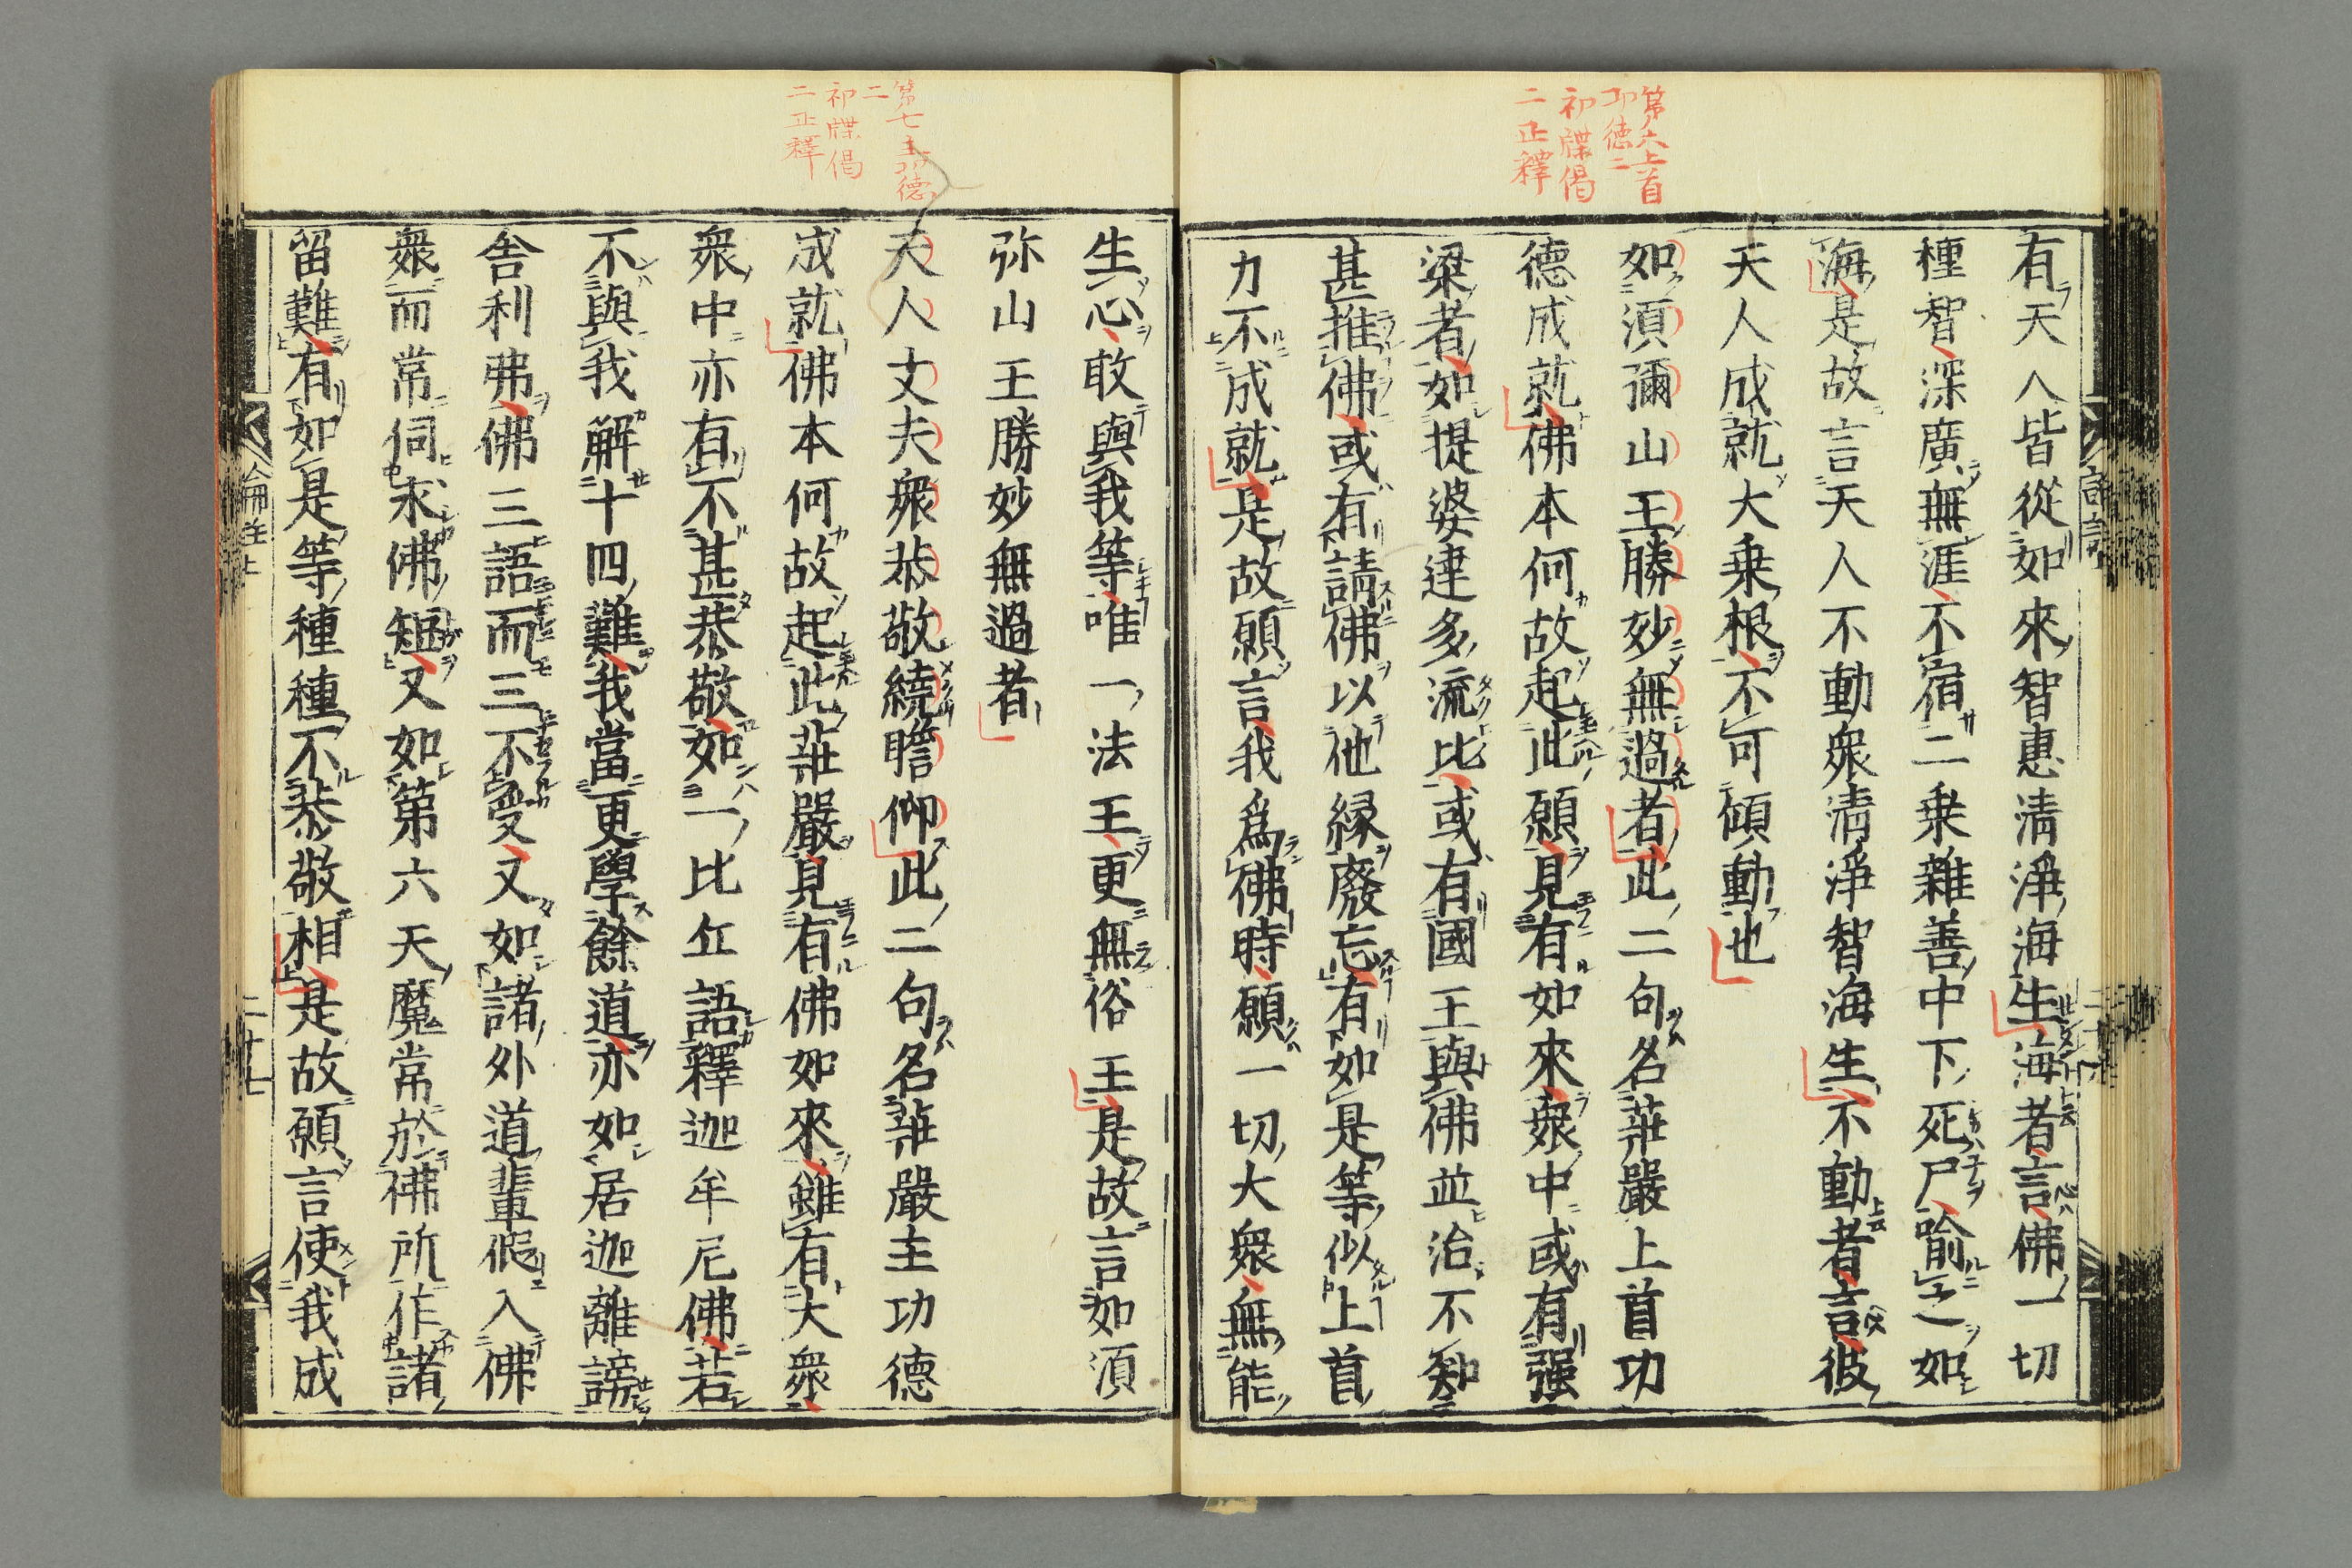 第六上首
功德二
初牒偈
二正釋
有天人皆從如來智惠清淨海生海者言佛一切
種智深廣無涯不宿二乗雜善中下死尸喻之如
海是故言天人不動衆清淨智海生不動者言彼
天人成就大乗根不可傾動也
如湏彌山王勝妙無過者此二句名莊嚴上首功
德成就佛本何故起此願見有如來衆中或有强
梁者如提婆達多流比或有國王與佛並治不知
甚推佛或有請佛以他縁廢忘有如是等似上首
力不成就是故願言我爲佛時願一切大衆無能
第七主功德
二
初牒偈
二正釋
生心敢與我等唯一法王更無俗王是故言如湏
弥山王勝妙無過者
天人丈夫衆恭敬繞瞻仰此二句名莊嚴主功德
成就佛本何故起此莊嚴見有佛如來雖有大衆
衆中亦有不甚恭敬如一比丘語釋迦牟尼佛若
不與我解十四難我當更學餘道亦如居迦離謗
舎利弗佛三語而三不受又如諸外道輩假入佛
衆而常伺求佛短又如第六天魔常於佛所作諸
留難有如是等種種不恭敬相是故願言使我成
論註上
二十七